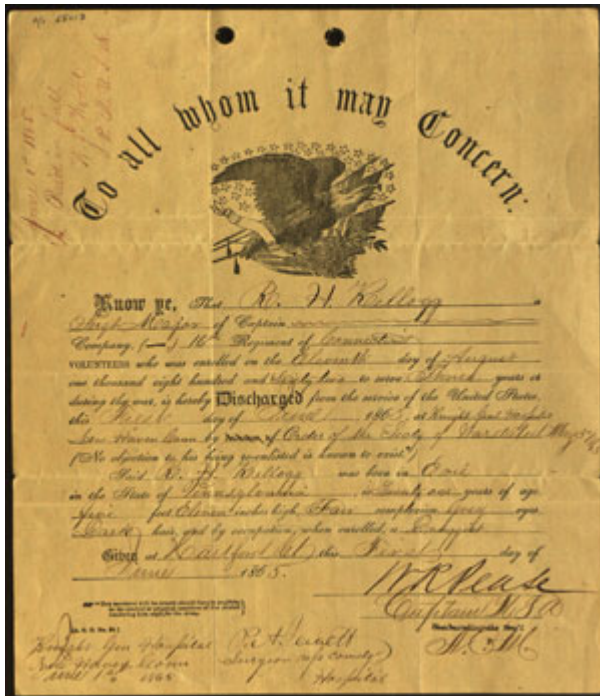 June 1st 1865.
Paid in full
To all whom it may Concern:
Know ye, That R. H. Kellogg a
Sergt Major of Captain
Company, (—) 16th Regiment of Connecticut
VOLUNTEERS who was enrolled on the Eleventh day of August
one thousand eight hundred and Sixty two to serve Three years or
during the war, is hereby Discharged from the service of the United States,
this First day of June, 1865, at Knight Genl Hospital
New Haven Conn by of Order of the Secty of War dated May
(No objection to his being reenlisted is known to exist.)
Said R. H. Kellogg was born in Erie
in the State of Pennsylvania, is Twenty one years of age,
Five feet Eleven inches high, Fair complexion, Grey eyes,
Dark hair, and by occupation, when enrolled, a Druggist
Given at Hartford Ct, this First day of
June 1865.
W R Pease
Captain U.S.A
Knight Gen Hospital
New Haven Conn
June 1st 1865
Surgeon in Comdg
Hospital